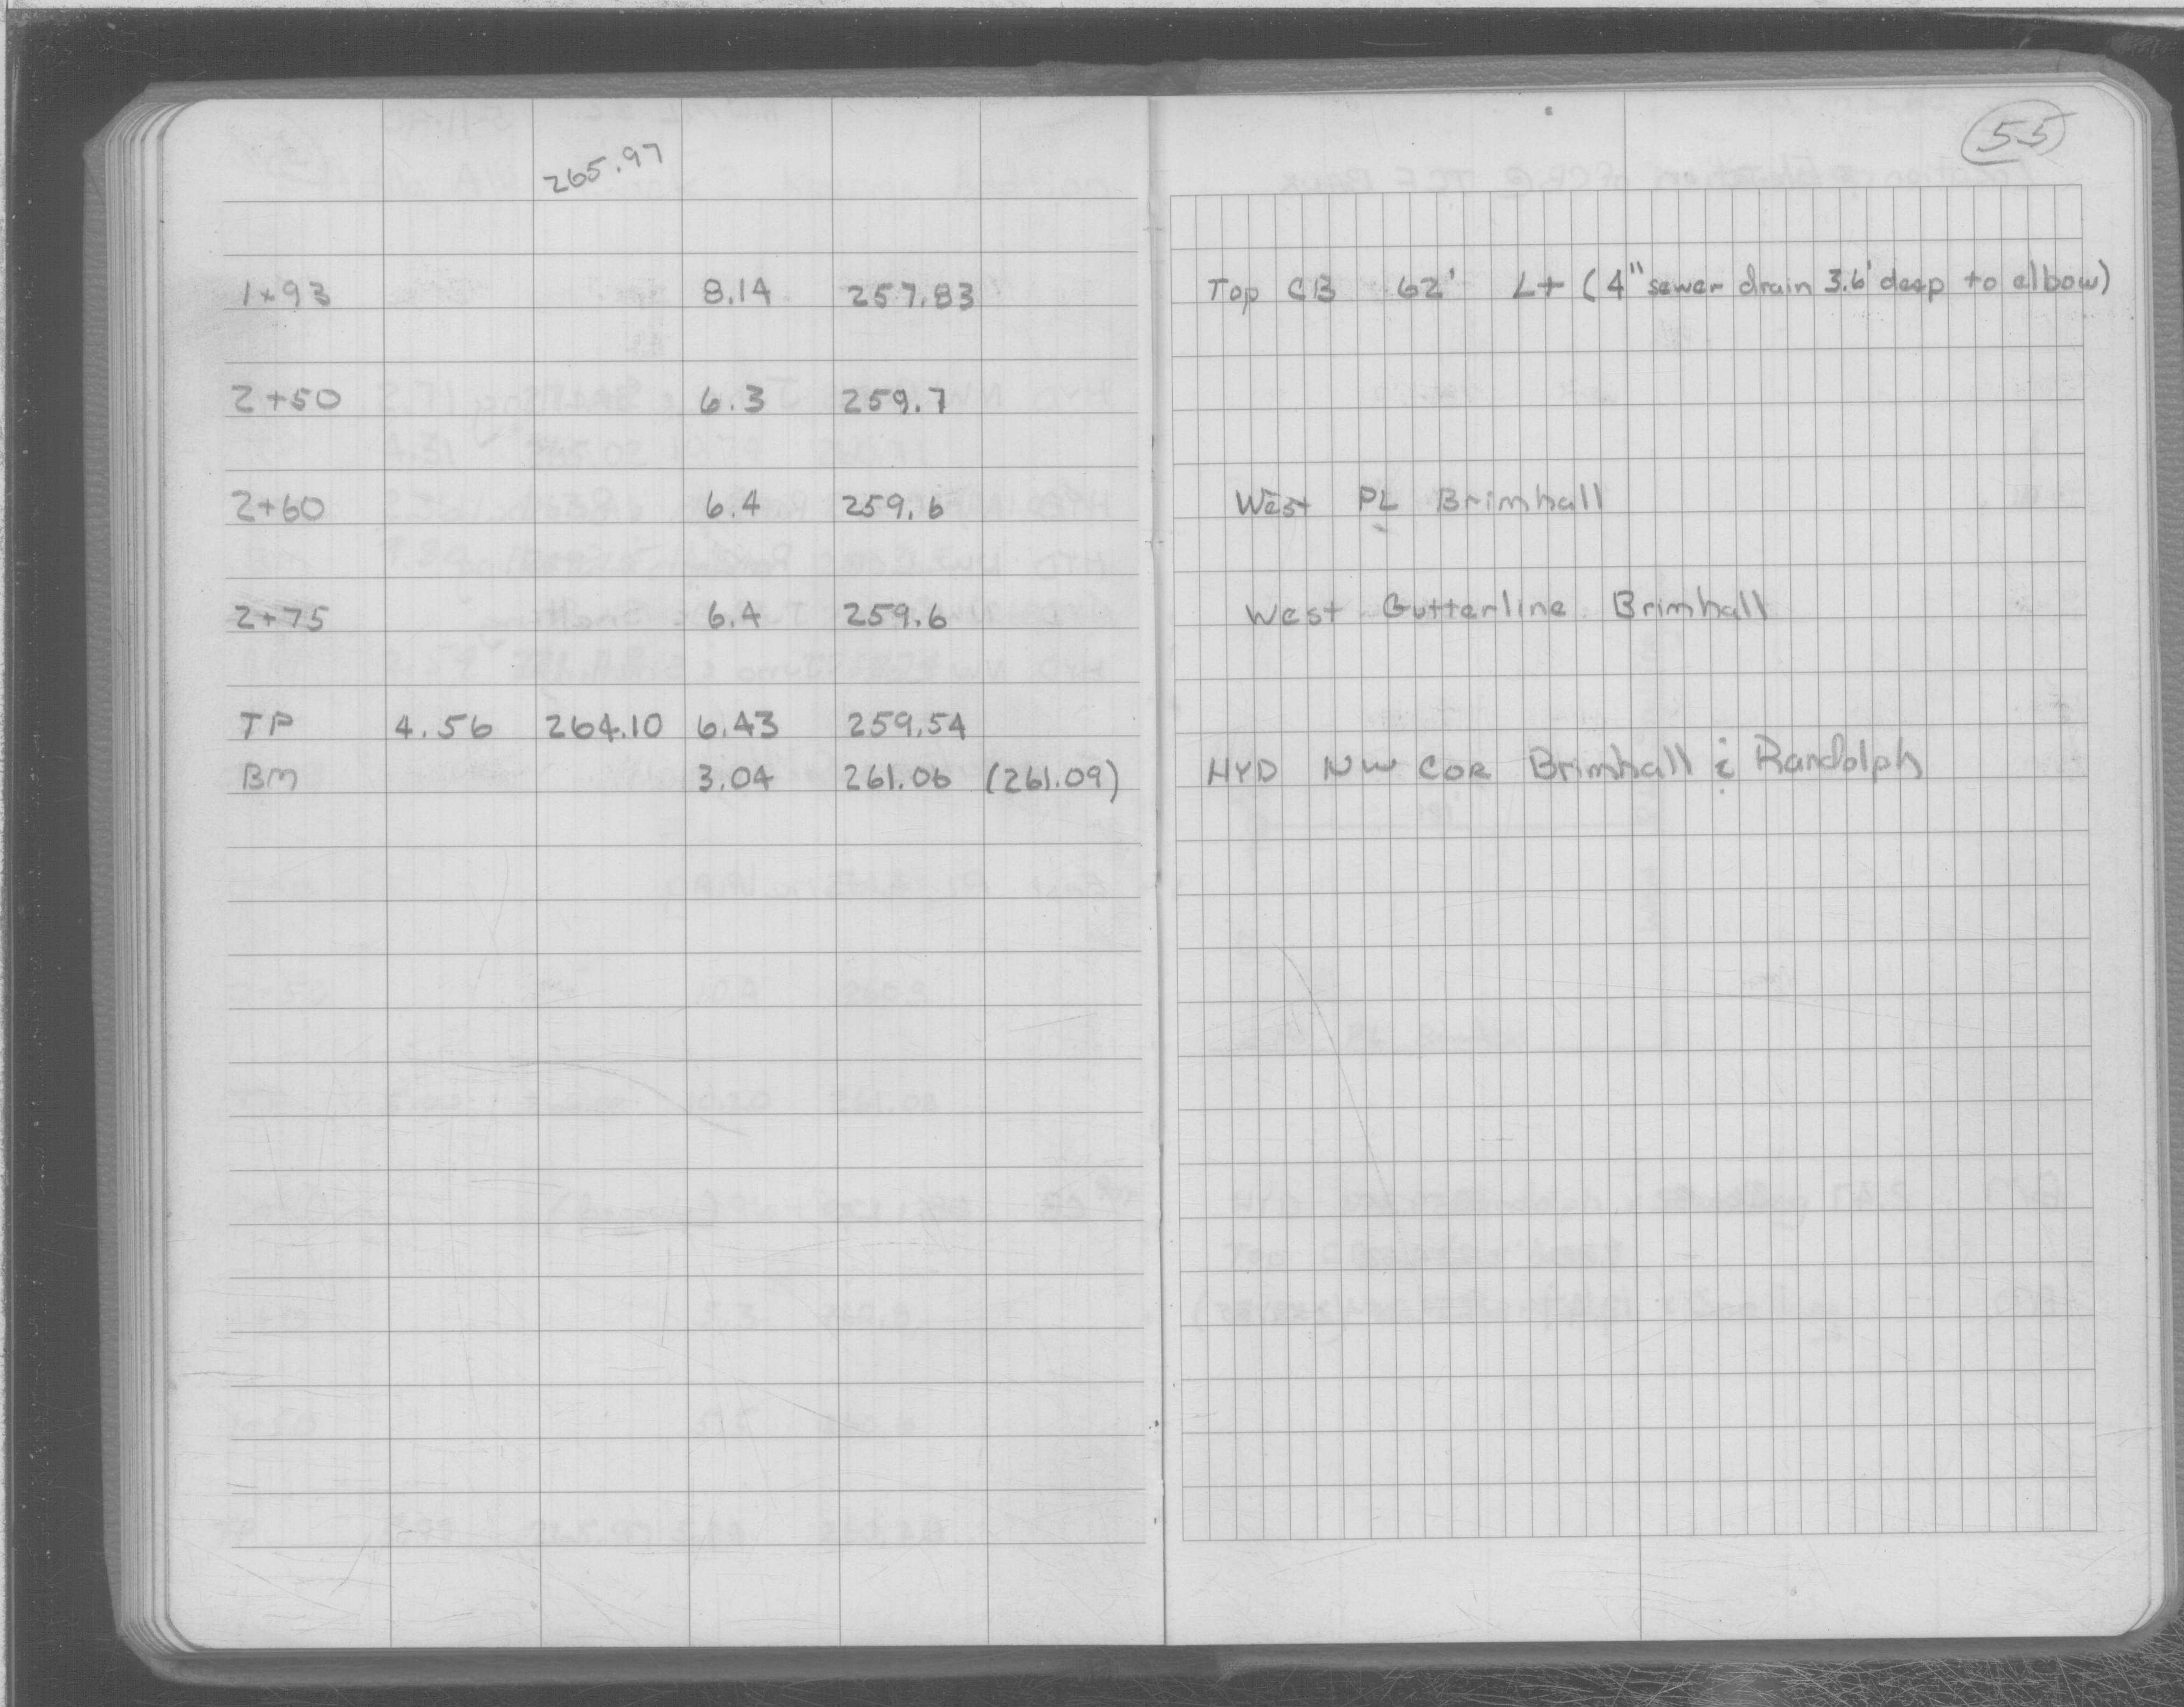 55
265.97
1+93 8.14 257.83 Top CB 62' Lt (4" sewer drain 3.6' deep to elbow)
2+50 6.3 259.7
2+60 6.4 259.6 West PL Brimhall
2+75 6.4 259.6 West Gutterline Brimhall
TP 4.56 264.10 6.43 259.54
BM 3.04 261.06 (261.09) HYD NW COR Brimhall & Randolph